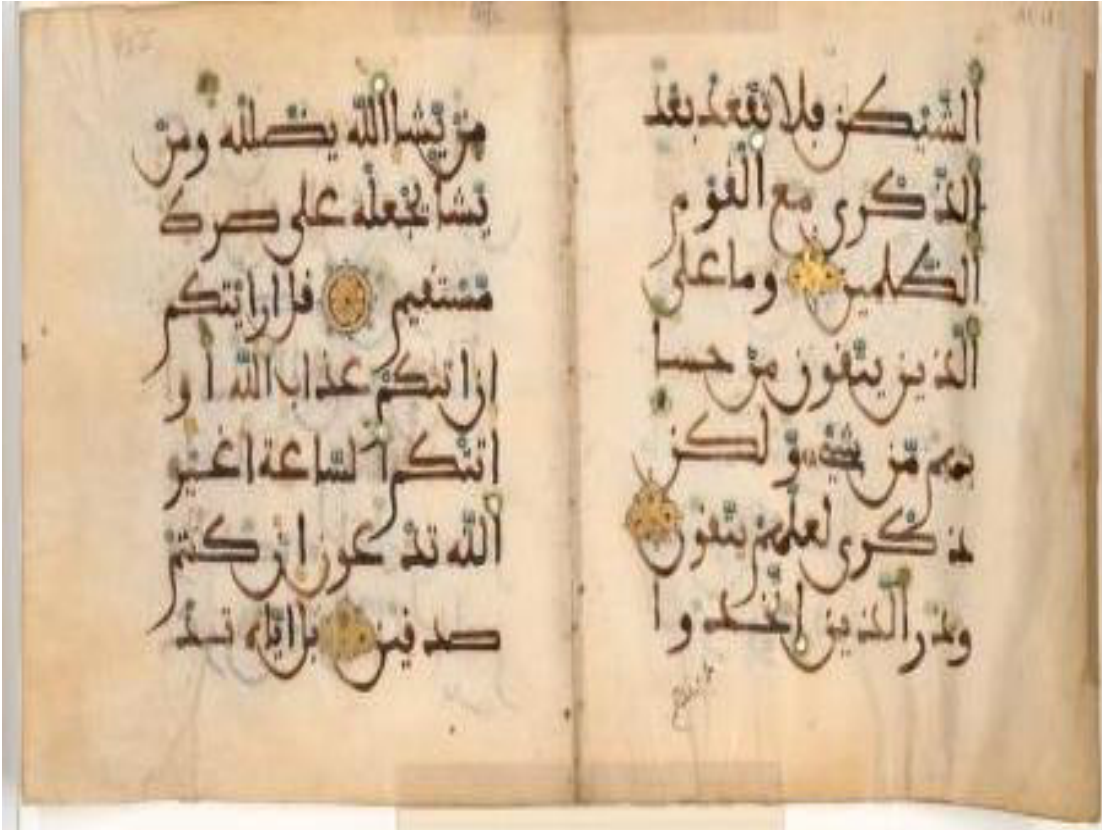 الشّيطٰن فلا تقعد بعد
الذّكرى مع القوم
الظّلمين وما على
الّذين يتّقون من حسا
بهم مّن شيء وّلكن
ذكرى لعلّهم يتّقون
وذر الّذين اتّخذوا
من يّشا الله يضلله ومن
يّشا يجعله على صرط
مّستقيم قل ارايتكم
ان اتيكم عذاب الله او
اتتكم السّاعة اغير
الله تدعون ان كنتم
صدقين بل ايّاه تد